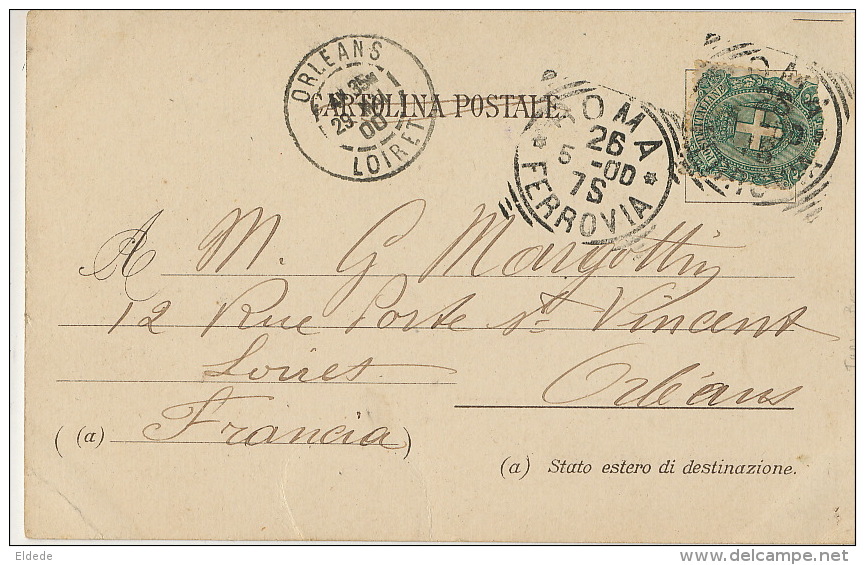 ORLEANS
LOIRET
CARTOLINA POSTALE.
ROMA
26
5 -00
7S
FERROVIA
A M. G Margottin
12 Rue Porte St Vincent
Loiret
Orléans
((a) Francia)
(a) Stato estero di destinazione.
Eldede
delcampe.net